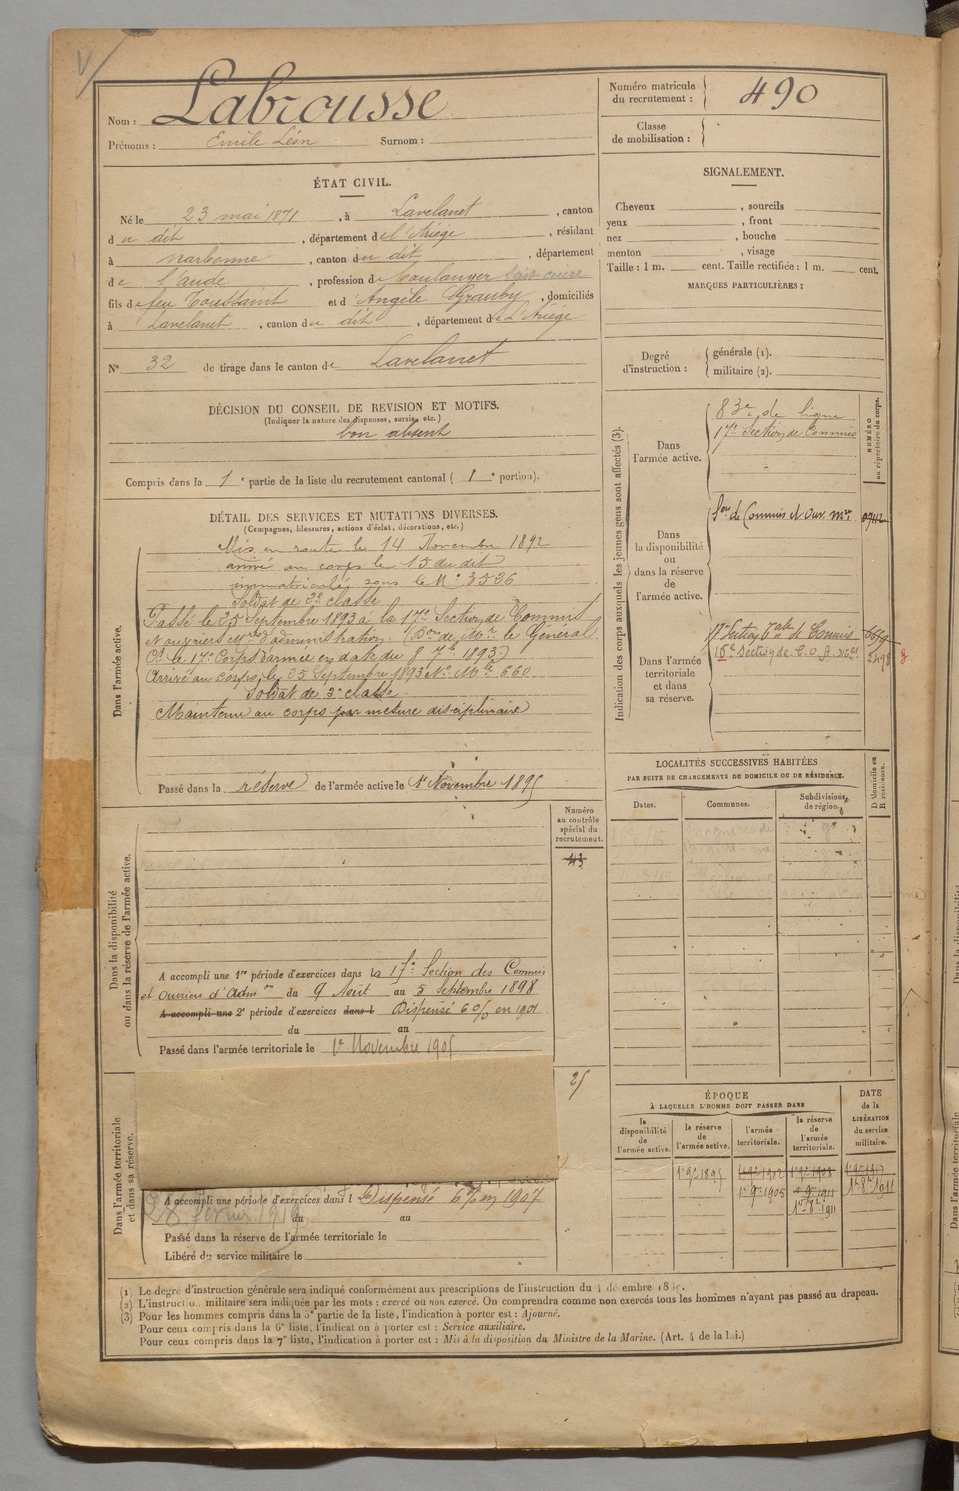 Nom : Labrousse
Prénoms : Emile Léon Surnom :
Numéro matricule
du recrutement : 490
Classe
de mobilisation :
ÉTAT CIVIL.
Né le 23 mai 1871, à Lavelanet, canton
du dit, département de l'Ariège, résidant
à Narbonne, canton du dit, département
de l'aude, profession de boulanger
fils de feu Toussaint et d'Angèle Grauby, domiciliés
à Lavelanet, canton du dit, département de L'Ariège
N° 32 de tirage dans le canton de Lavelanet
SIGNALEMENT.
Cheveux , sourcils
yeux , front
nez , bouche
menton , visage
Taille : 1 m. cent. Taille rectifiée : 1 m. cent.
MARQUES PARTICULIÈRES :
Degré
d'instruction :
générale (1).
militaire (2).
DÉCISION DU CONSEIL DE REVISION ET MOTIFS.
(Indiquer la nature des dispenses, sursis, etc.)
bon absent
Compris dans la 1e partie de la liste du recrutement cantonal ( 1e portion).
DÉTAIL DES SERVICES ET MUTATIONS DIVERSES.
(Campagnes, blessures, actions d'éclat, décorations, etc.)
Dans l'armée active.
Mis en route le 14 Novembre 1892
arrivé au corps le 15 du dit
immatriculé sous le N° 3526
Soldat de 2e classe
Passé le 25 Septembre 1893 à la 17e Section de Commis
N ouvriers Mres d'administration. (Don de Mr le Général
Ct le 17e Corps d'armée en date du 8 7bre 1893)
Arrivé au corps le 25 Septembre 1893 N° Mle 660
Soldat de 2e classe.
Maintenu au corps par mesure disciplinaire
Passé dans la réserve de l'armée active le 1er Novembre 1895
Indication des corps auxquels les jeunes gens sont affectés (3).
NUMÉRO
au répertoire du corps.
Dans
l'armée active.
83e de ligne
17e Section de Commis
Dans
la disponibilité
ou
dans la réserve
de
l'armée active.
Son de Commis et Ouv. Mres
Dans l'armée
territoriale
et dans
sa réserve.
17e Section tale de Commis
16e Section de C.O.
LOCALITÉS SUCCESSIVES HABITÉES
PAR SUITE DE CHANGEMENTS DE DOMICILE OU DE RÉSIDENCE.
Dates. Communes. Subdivisions de région. D Domicile ou R résidence.
Dans la disponibilité
ou dans la réserve de l'armée active.
Numéro
au contrôle
spécial du
recrutement.
43
A accompli une 1re période d'exercices dans la 17e Section des Commis
et ouvriers d'Admon du 9 Août au 5 Septembre 1898
A accompli une 2e période d'exercices dans l Dispensé 6% en 1901
du au
Passé dans l'armée territoriale le 1er Novembre 1905
25
Dans l'armée territoriale
et dans sa réserve.
A accompli une période d'exercices dans l Dispensé 6% en 1907
28 février 1919
du au
Passé dans la réserve de l'armée territoriale le
Libéré du service militaire le
ÉPOQUE
À LAQUELLE L'HOMME DOIT PASSER DANS
la disponibilité de l'armée active.
la réserve de l'armée active.
l'armée territoriale.
la réserve de l'armée territoriale.
DATE de la LIBÉRATION du service militaire.
1er 9bre 1895 1er 9bre 1902 1er 9bre 1908 1er 9bre 1917
1er 9bre 1905 1er 9bre 1911 1er 8bre 1911
1er 8bre 1911
(1) Le degré d'instruction générale sera indiqué conformément aux prescriptions de l'instruction du 4 décembre
(2) L'instruction militaire sera indiquée par les mots : exercé ou non exercé. On comprendra comme non exercés tous les hommes n'ayant pas passé au drapeau.
(3) Pour les hommes compris dans la 5e partie de la liste, l'indication à porter est : Ajourné.
Pour ceux compris dans la 6e liste, l'indication à porter est : Service auxiliaire.
Pour ceux compris dans la 7e liste, l'indication à porter est : Mis à la disposition du Ministre de la Marine. (Art. 4 de la loi.)